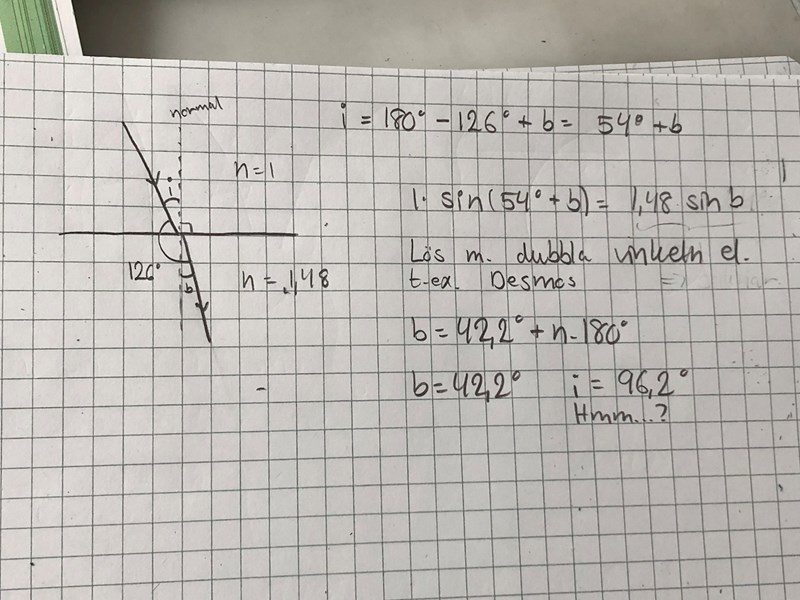 normal
i = 180° - 126° + b = 54° + b
i
n = 1
1· sin(54° + b) = 1,48 sin b
Lös m. dubbla vinkeln el.
t.ex. Desmos
126°
b
n = 1,48
b = 42,2° + n·180°
b = 42,2° i = 96,2°
Hmm...?